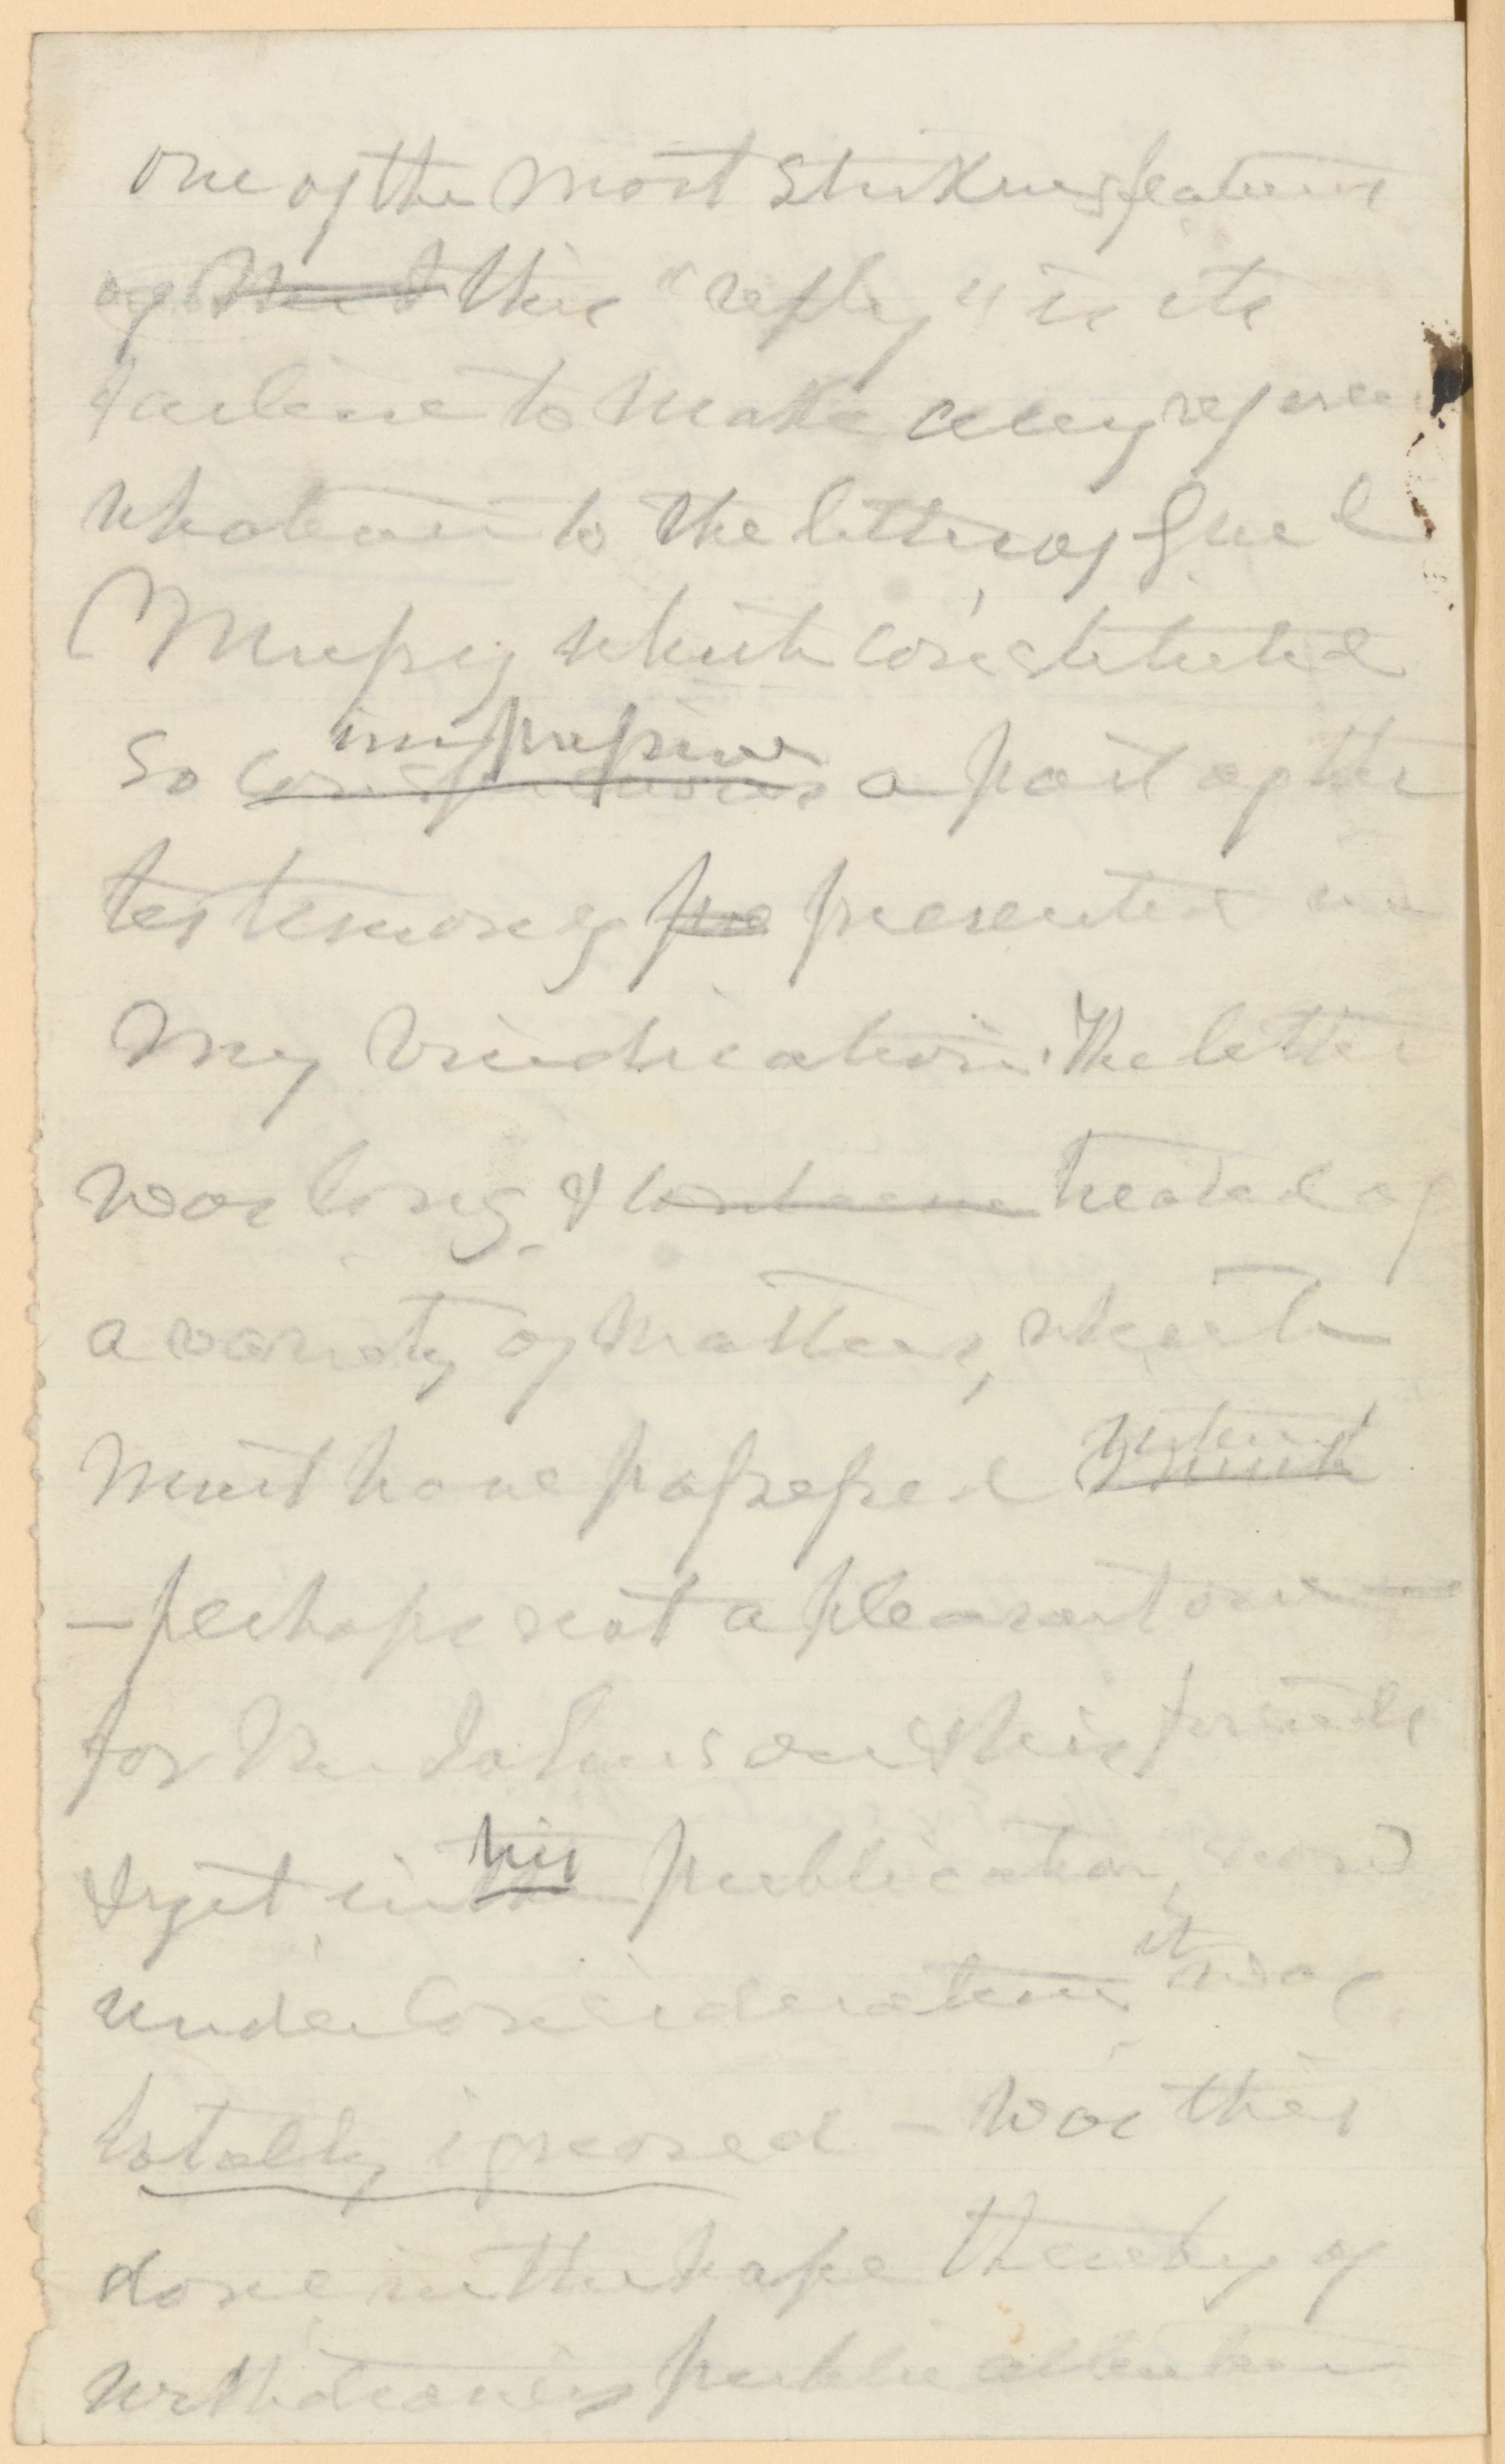 one of the most striking features
of Mr J this "reply" is its
failure to make any referen
whatever to the letter of Genl
Mussey which constituted
impressive
so conspicuous a part of the
testimony pre presented in
my vindication. The letter
was long, & contain treated of
a variety of matters, which
interest
must have possessed
– perhaps not a pleasant one –
for Mr Johnson & his friends
his
& yet in the publication, now
it
under consideration, was
totally ignored – Was this
done in the hope thereby of
withdrawing public attention